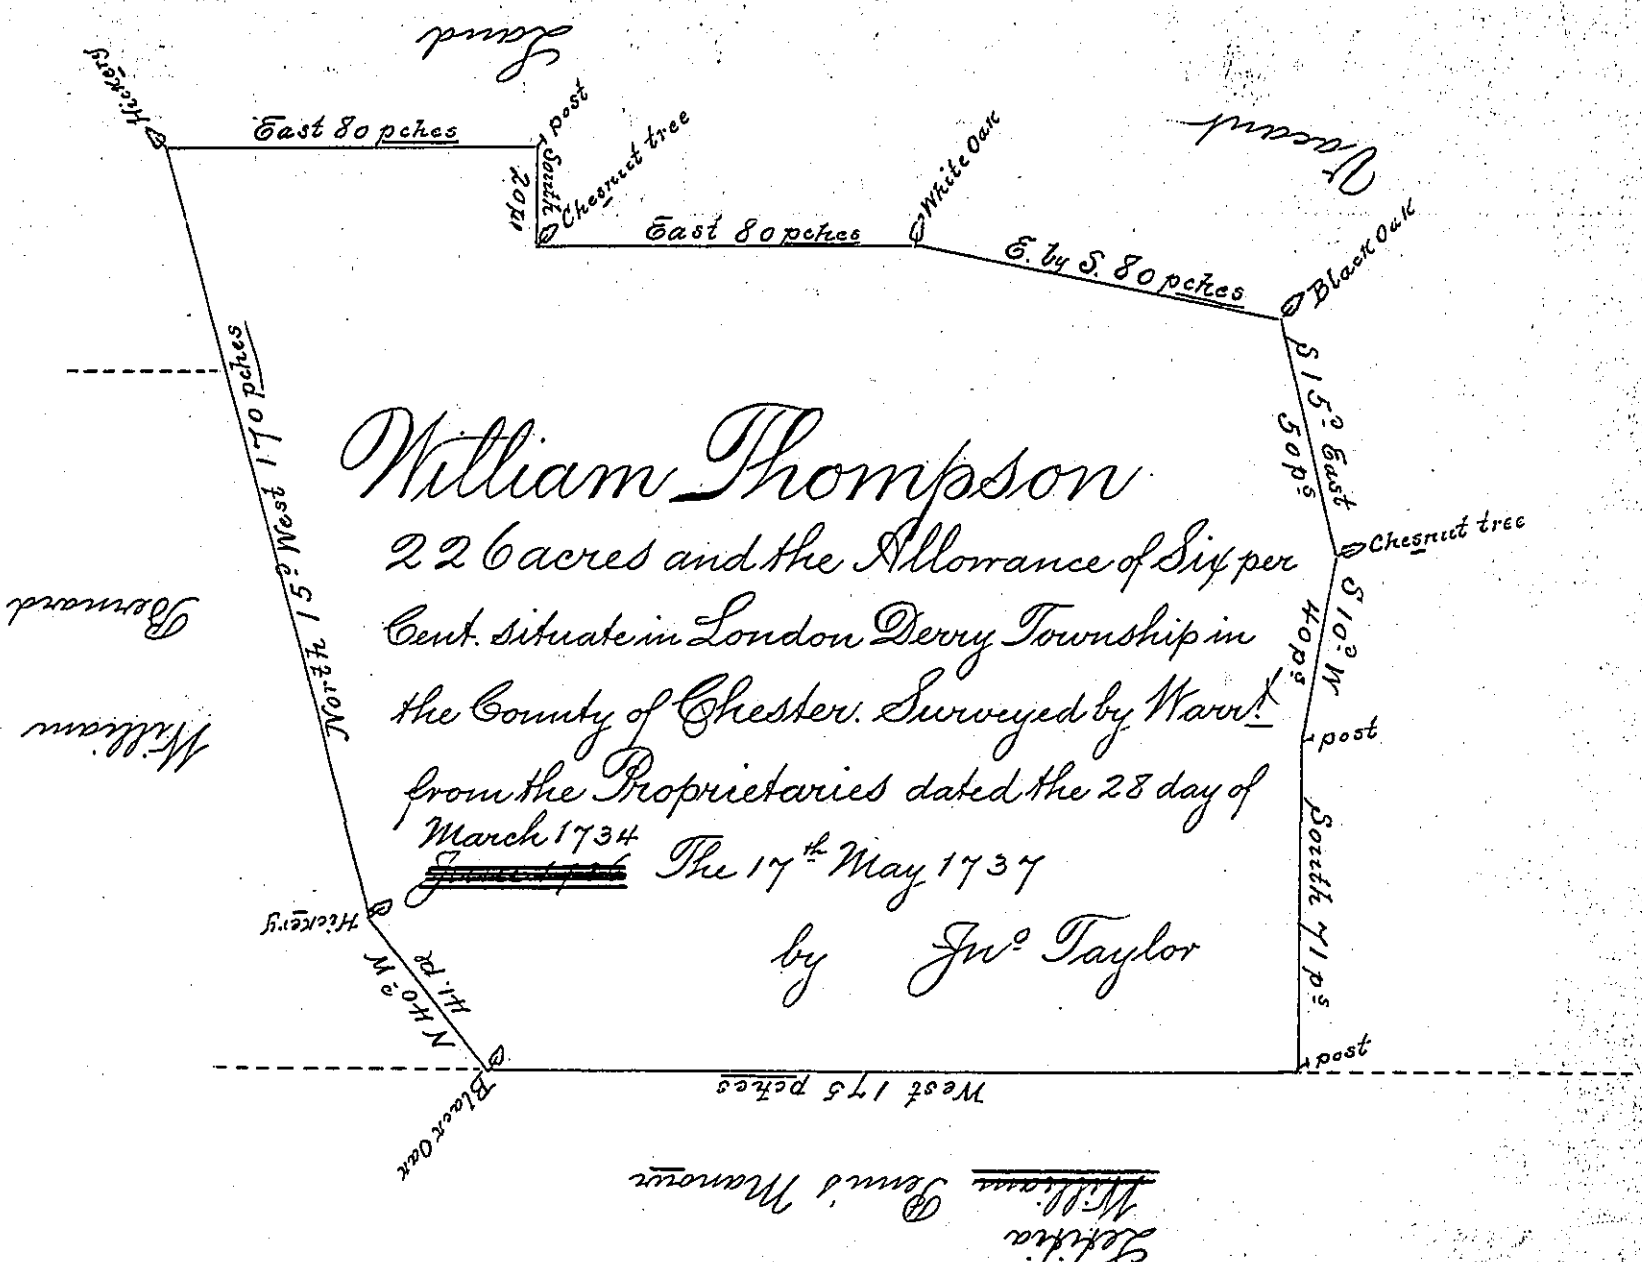 Land
Vacant
Hickery
East 80 pches
post
South
20 ps
Chesnut tree
East 80 pches
White Oak
E. by S. 80 pches
Black Oak
S 15° East
50 ps
Chesnut tree
S 10° W
40 ps
post
South 71 ps
post
West 175 pches
Black Oak
N 40° W
41. pe
Hickery
North 15° West 170 pches
William Thompson
226 acres and the Allowance of Six per
Cent. situate in London Derry Township in
the County of Chester. Surveyed by Warrt.
from the Proprietaries dated the 28 day of
March 1734
The 17th May 1737
by Jno Taylor
William
Bernard
Letitia
William Penn's Manour